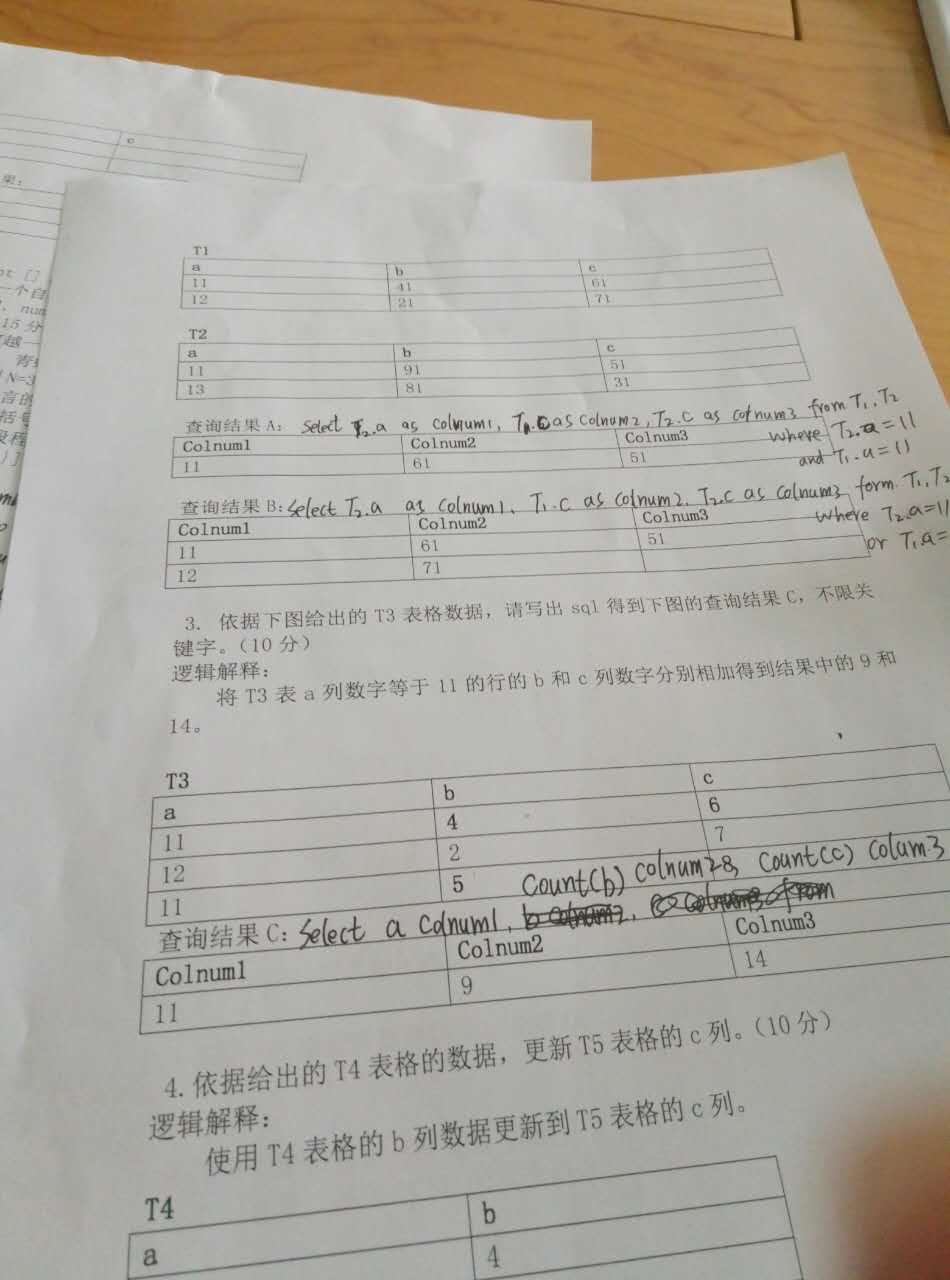 c
果:
T1
a b c
11 41 61
12 21 71
T2
a b c
11 91 51
13 81 31
查询结果 A: select T2.a as colnum1, T1.c as colnum2, T2.c as colnum3 from T1,T2
where T2.a=11
and T1.a=11
Colnum1 Colnum2 Colnum3
11 61 51
查询结果 B: select T2.a as colnum1, T1.c as colnum2, T2.c as colnum3 form T1,T2
where T2.a=11
or T1.a=
Colnum1 Colnum2 Colnum3
11 61 51
12 71
3. 依据下图给出的 T3 表格数据，请写出 sql 得到下图的查询结果 C，不限关
键字。（10 分）
逻辑解释：
将 T3 表 a 列数字等于 11 的行的 b 和 c 列数字分别相加得到结果中的 9 和
14。
T3
a b c
11 4 6
12 2 7
11 5
count(b) colnum2, count(c) colum3
查询结果 C: select a colnum1,
Colnum1 Colnum2 Colnum3
11 9 14
4. 依据给出的 T4 表格的数据，更新 T5 表格的 c 列。（10 分）
逻辑解释：
使用 T4 表格的 b 列数据更新到 T5 表格的 c 列。
T4
a b
4